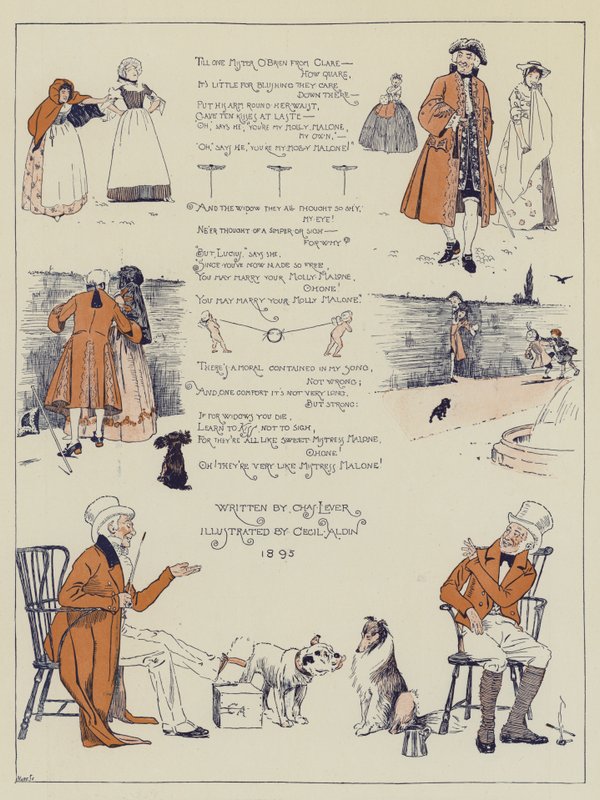 TILL ONE MISTER O'BRIEN FROM CLARE—
HOW QUARE,
IT'S LITTLE FOR BLUSHING THEY CARE
DOWN THERE—
PUT HIS ARM ROUND HER WAIST,
GAVE TEN KISSES AT LASTE—
"OH," SAYS HE, "YOU'RE MY MOLLY MALONE,
MY OWN,"—
"OH," SAYS HE, "YOU'RE MY MOLLY MALONE!"
AND THE WIDOW THEY ALL THOUGHT SO SHY,
MY EYE!
NE'ER THOUGHT OF A SIMPER OR SIGH—
FOR WHY?
"BUT, LUCIUS," SAYS SHE,
"SINCE YOU'VE NOW MADE SO FREE,
YOU MAY MARRY YOUR MOLLY MALONE,
OHONE!
YOU MAY MARRY YOUR MOLLY MALONE."
THERE'S A MORAL CONTAINED IN MY SONG,
NOT WRONG;
AND, ONE COMFORT IT'S NOT VERY LONG,
BUT STRONG:
IF FOR WIDOWS YOU DIE,
LEARN TO KISS NOT TO SIGH,
FOR THEY'RE ALL LIKE SWEET MISTRESS MALONE,
OHONE!
OH! THEY'RE VERY LIKE MISTRESS MALONE!
WRITTEN BY CHAS LEVER
ILLUSTRATED BY CECIL ALDIN
1895
CA